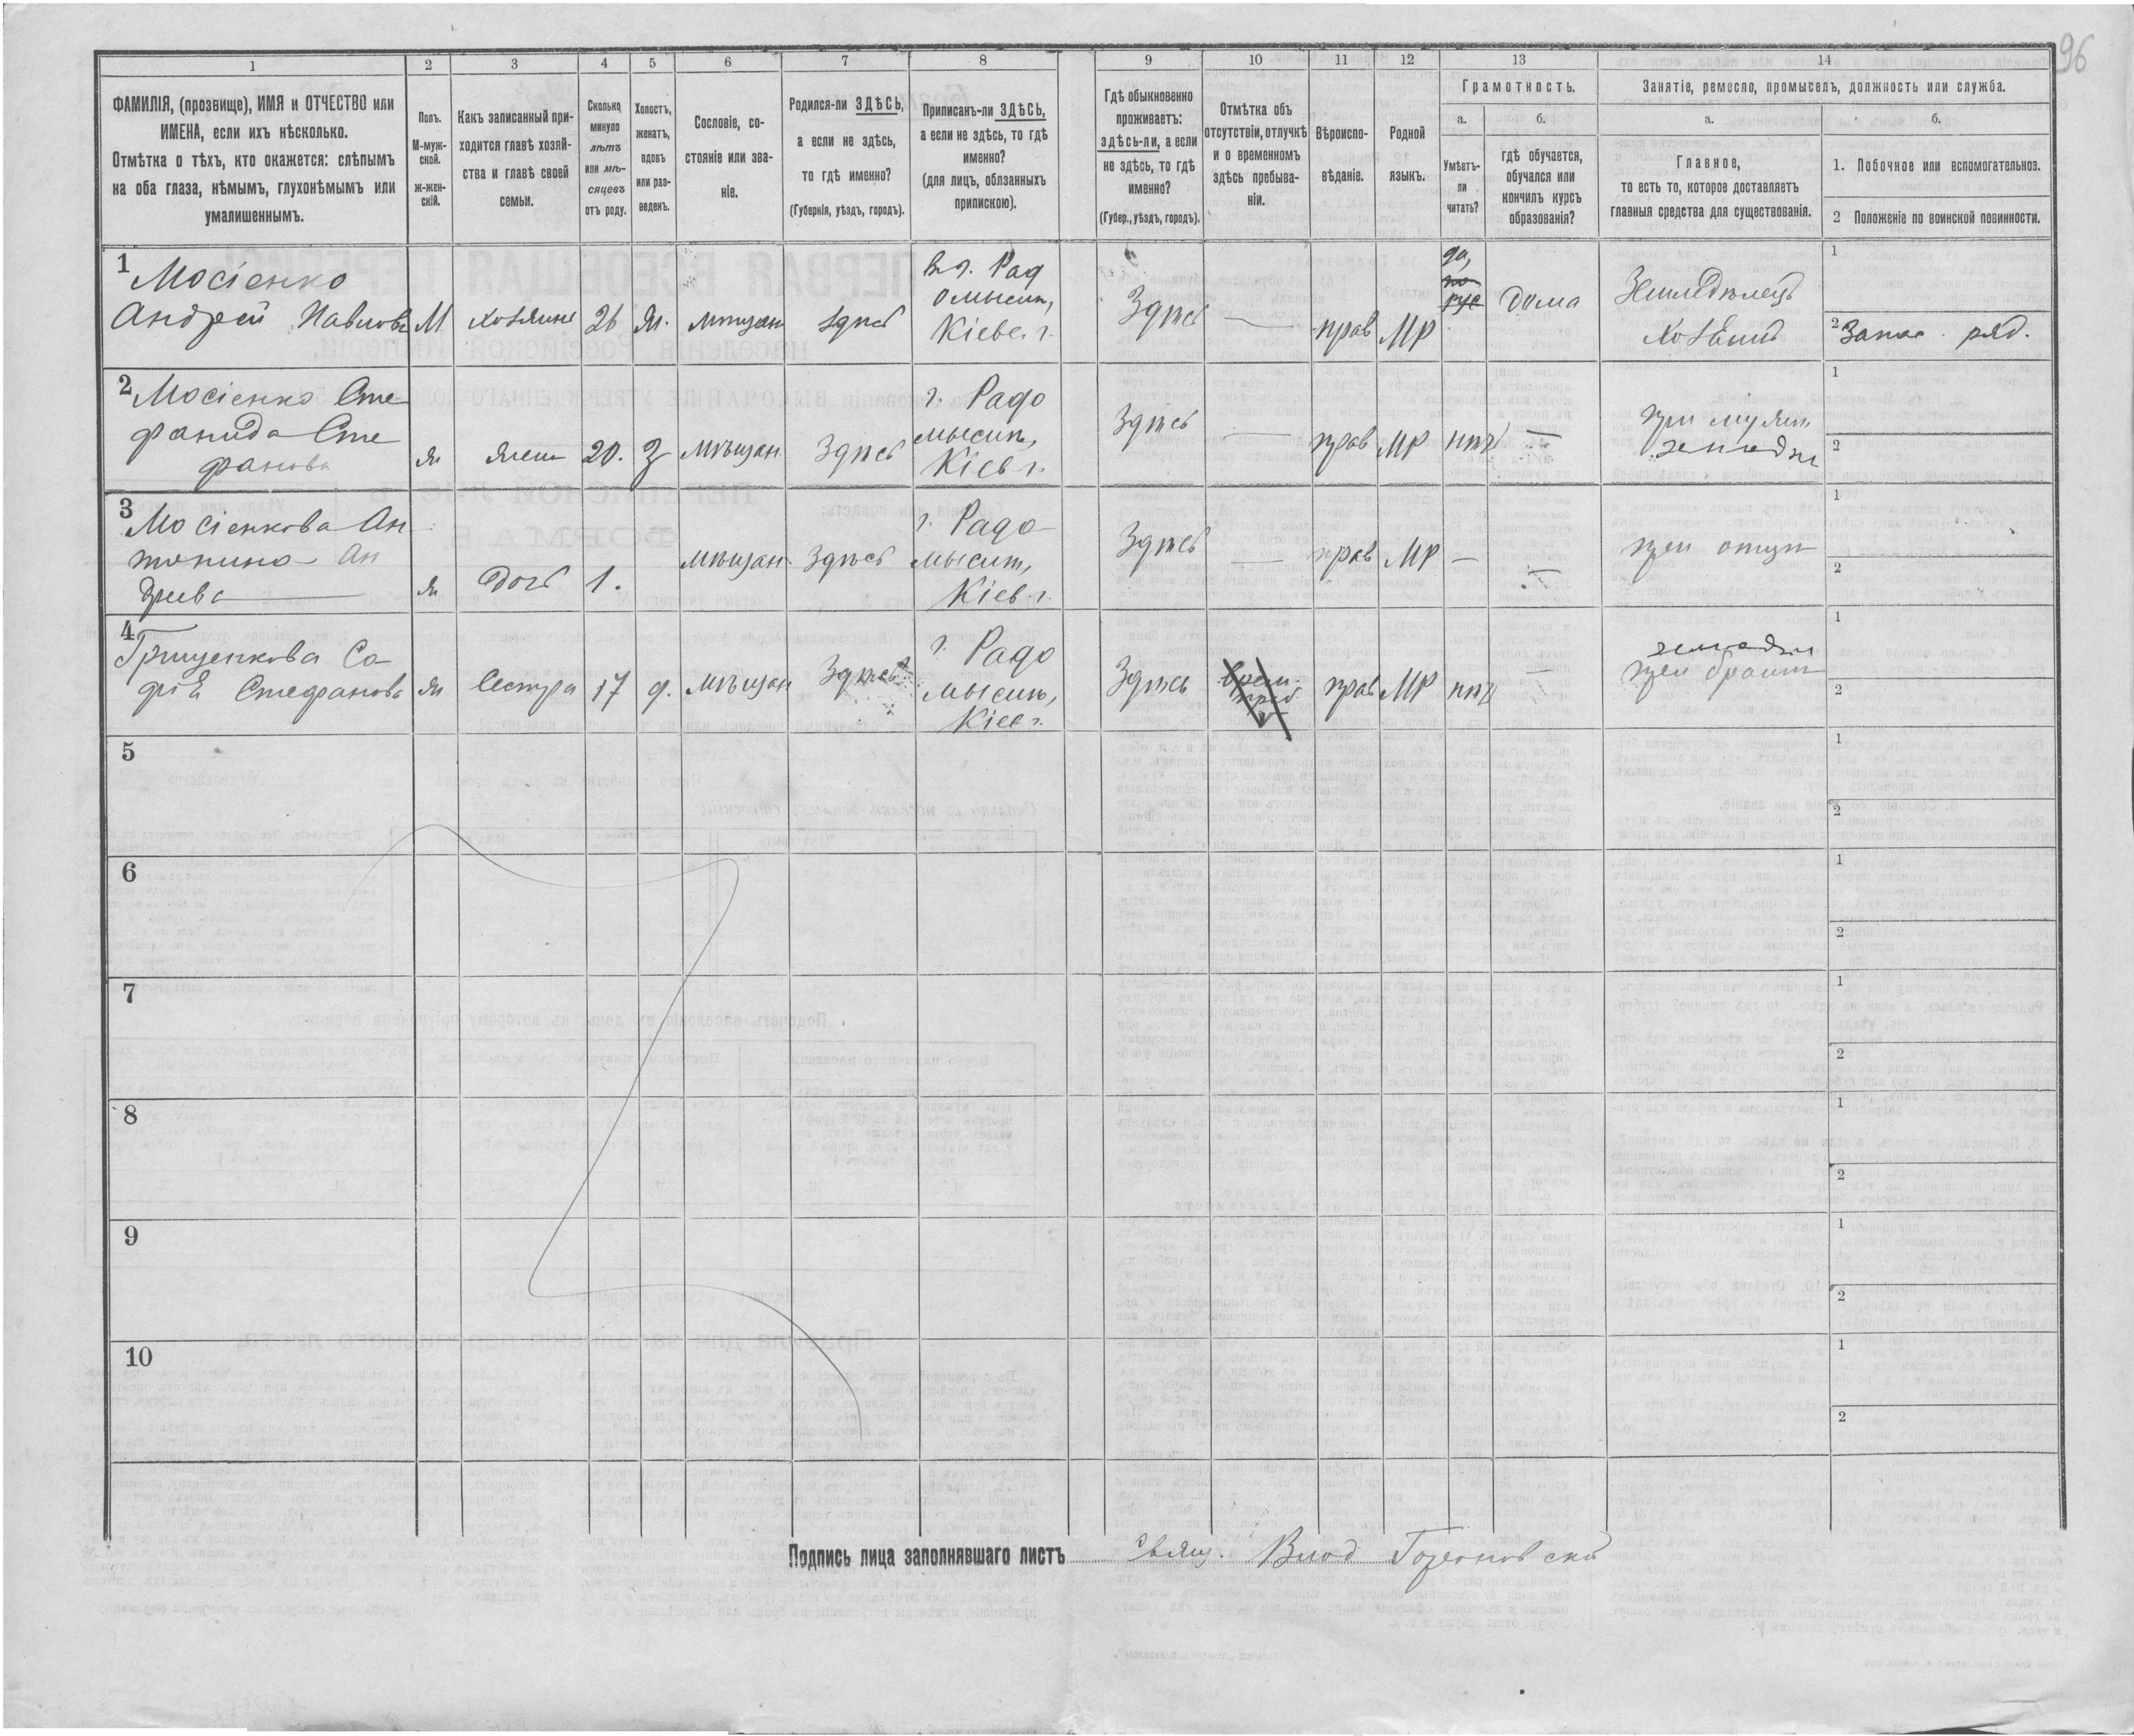 96
1 2 3 4 5 6 7 8 9 10 11 12 13 14
ФАМИЛІЯ, (прозвище), ИМЯ и ОТЧЕСТВО или
ИМЕНА, если ихъ нѣсколько.
Отмѣтка о тѣхъ, кто окажется: слѣпымъ
на оба глаза, нѣмымъ, глухонѣмымъ или
умалишеннымъ.
Полъ.
М-муж-
ской.
ж-жен-
скій.
Какъ записанный при-
ходится главѣ хозяй-
ства и главѣ своей
семьи.
Сколько
минуло
лѣтъ
или мѣ-
сяцевъ
отъ роду.
Холостъ,
женатъ,
вдовъ
или раз-
веденъ.
Сословіе, со-
стояніе или зва-
ніе.
Родился-ли ЗДѢСЬ,
а если не здѣсь,
то гдѣ именно?
(Губернія, уѣздъ, городъ).
Приписанъ-ли ЗДѢСЬ,
а если не здѣсь, то гдѣ
именно?
(для лицъ, обязанныхъ
припискою).
Гдѣ обыкновенно
проживаетъ:
здѣсь-ли, а если
не здѣсь, то гдѣ
именно?
(Губер., уѣздъ, городъ).
Отмѣтка объ
отсутствіи, отлучкѣ
и о временномъ
здѣсь пребыва-
ніи.
Вѣроиспо-
вѣданіе.
Родной
языкъ.
Грамотность.
а.
Умѣетъ-
ли
читать?
б.
гдѣ обучается,
обучался или
кончилъ курсъ
образованія?
Занятіе, ремесло, промыселъ, должность или служба.
а.
Главное,
то есть то, которое доставляетъ
главныя средства для существованія.
б.
1. Побочное или вспомогательное.
2 Положеніе по воинской повинности.
1 Мосіенко
Андрей Павловъ
М
хозяинъ
26
ж.
мѣщан
здѣсь
въ г. Рад
омыслѣ,
Кіевс. г.
Здѣсь
—
прав
МР
да,
по
рус
дома
Земледѣлецъ
хозяинъ
1
2 Запас. ряд.
2 Мосіенко Сте
фанида Сте
фанова
ж
жена
20.
З
мѣщан
Здѣсь
г. Радо
мыслѣ,
Кіев г.
Здѣсь
—
прав
МР
нѣтъ
—
при мужѣ
земледѣл
1
2
3 Мосіенкова Ан
тонина Ан
дреева
ж
дочь
1.
мѣщан.
Здѣсь
г. Радо-
мыслѣ,
Кіев г.
Здѣсь
—
прав
МР
—
—
при отцѣ
1
2
4 Грищенкова Со-
фія Стефанова
ж
Сестра
17
д.
мѣщан
Здѣсь
г. Радо
мыслѣ,
Кіев г.
Здѣсь
прав
МР
нѣтъ
—
земледѣл
при братѣ
1
2
5
1
2
6
1
2
7
1
2
8
1
2
9
1
2
10
1
2
Подпись лица заполнявшаго листъ Свящ. Влад